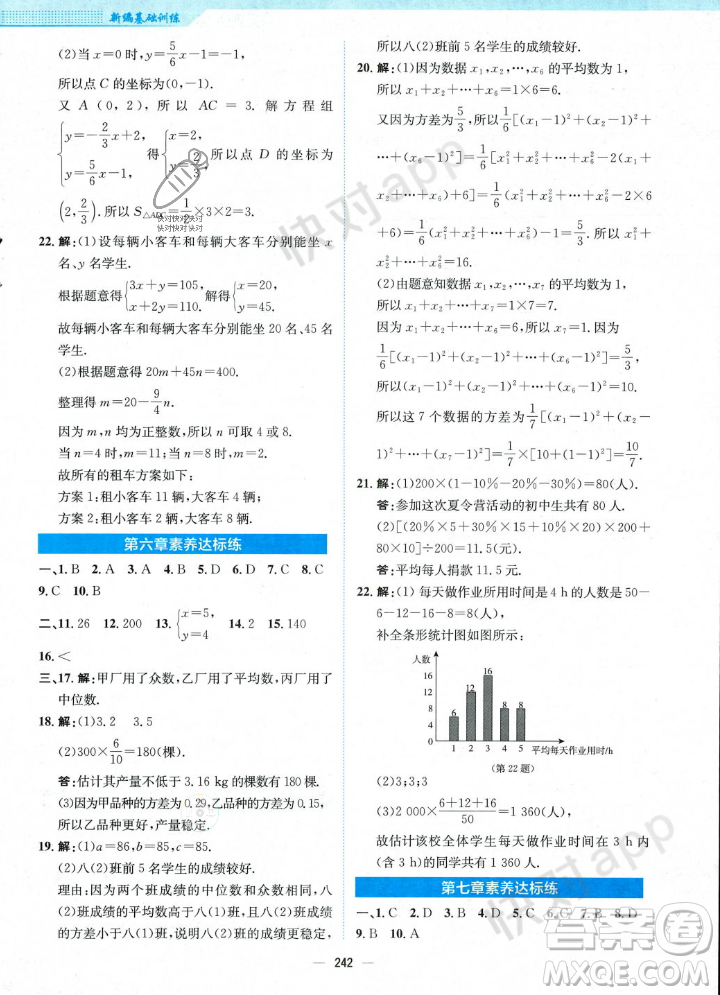 新编基础训练
(2)当 x=0时,y=5/6x-1=-1,
所以点 C 的坐标为(0,-1).
又 A (0, 2), 所以 AC = 3. 解方程组
{y=-2/3x+2, y=5/6x-1, 得{x=2, y=2/3. 所以点 D 的坐标为
(2,2/3).所以 S△ADC=1/2×3×2=3.
22. 解:(1)设每辆小客车和每辆大客车分别能坐 x
名、y 名学生.
根据题意{3x+y=105, x+2y=110, 解得{x=20, y=45.
故每辆小客车和每辆大客车分别能坐 20 名、45 名
学生.
(2)根据题意 20m+45n=400.
整理得 m=20-9/4n.
因为 m,n 均为非负数,所以 n 可取 4 或 8.
当 n=4 时,m=11;当 n=8 时,m=2.
故所有的租车方案如下:
方案 1:租小客车 11 辆,大客车 4 辆;
方案 2:租小客车 2 辆,大客车 8 辆.
第六章素养达标练
一、1. B 2. A 3. A 4. B 5. D 6. B 7. C 8. C
9. C 10. B
二、11. 26 12. 200 13. {x=5, y=4 14. 2 15. 140
16. <
三、17. 解:甲厂用了众数,乙厂用了平均数,丙厂用了
中位数.
18. 解:(1)3.2 3.5
(2)300×6/10=180(棵).
答:估计其产量不低于 3.16 kg 的棵数有 180 棵.
(3)因为甲品种的方差为 0.29,乙品种的方差为 0.15,
所以乙品种更好,产量稳定.
19. 解:(1)a=86,b=85,c=85.
(2)八(2)班前 5 名学生的成绩较好.
理由:因为两个班成绩的中位数和众数相同,而八(2)
班成绩的平均数大于八(1)班,且八(2)班的成绩
的方差小于八(1)班,说明八(2)班的成绩更稳定,
所以八(2)班前 5 名学生的成绩较好.
20. 解:(1)因为数据 x1,x2,…,x6 的平均数为 1,
所以 x1+x2+…+x6=1×6=6.
又因为方差为5/3,所以1/6[(x1-1)²+(x2-1)²+
…+(x6-1)²]=1/6[x1²+x2²+…+x6²-2(x1+x2+
…+x6)+6]=1/6(x1²+x2²+…+x6²-2×6
+6)=1/6(x1²+x2²+…+x6²)-1=5/3.所以x1²+
x2²+…+x6²=16.
(2)由题意知数据 x1,x2,…,x7 的平均数为 1,
所以 x1+x2+…+x7=1×7=7.
因为 x1+x2+…+x6=6,所以 x7=1.因为
1/6[(x1-1)²+(x2-1)²+…+(x6-1)²]=5/3,
所以(x1-1)²+(x2-1)²+…+(x6-1)²=10.
所以这 7 个数据的方差为1/7[(x1-1)²+(x2-
1)²+…+(x7-1)²]=1/7[10+(1-1)²]=10/7.
21. 解:(1)200×(1-10%-20%-30%)=80(人).
答:参加这次夏令营活动的初中生共有 80 人.
(2)[(20%×5+30%×10+10%×15)×200+
80×10]÷200=11.5(元).
答:平均每人捐款 11.5 元.
22. 解:(1)每天做作业所用时间是 4 h 的人数是 50-
6-12-16-8=8(人),
补全条形统计图如图所示:
人数
16
12
8
4
0
6 12 16 8 8
1 2 3 4 5 平均每天作业用时/h
(第 22 题)
(2)3;3;3
(3)2 000×(6+12+16)/50=1 360(人).
故估计该校全体学生每天做作业时间在 3 h 内
(含 3 h)的同学共有 1 360 人.
第七章素养达标练
一、1. C 2. D 3. B 4. D 5. C 6. C 7. B 8. D
9. B 10. A
242
快对app
快对app
快对 快对 快对
快对 快对 快对
答案圈
MXQE.COM